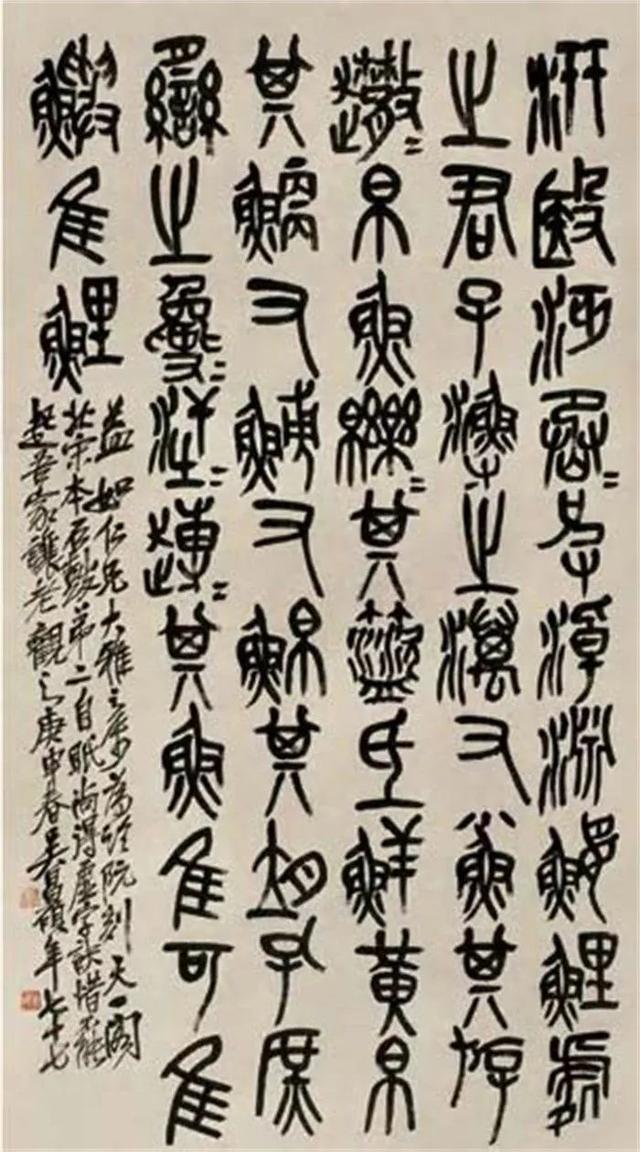 汧殹沔沔丞彼淖淵鰋鯉處
之君子漁之澫又小魚其斿
趣趣帛魚皪皪其盜氐鮮黃帛
其鯾又䱷又䰼其孔庶
臠之毚毚汗汗趍趍其魚隹可隹
鱮隹鯉
益如仁兄大雅之屬為臨阮刻天一閣
北宋本石鼓第二自眂尚得虛字訣惜不能
起吾家讓老觀之庚申春吳昌碩年七十七